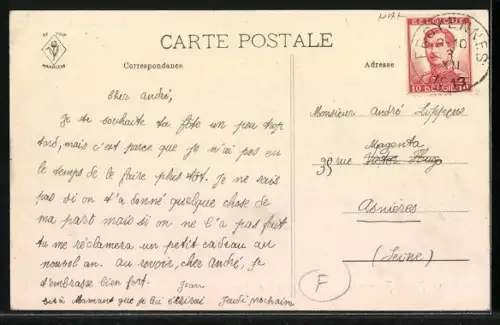 CARTE POSTALE
Correspondance
Adresse
DE TULP
HAARLEM
BELGIQUE
10 BELGIË 10
Cher André,
Je te souhaite ta fête un peu trop
tard, mais c'est parce que je n'ai pas eu
le temps de le faire plus tôt. Je ne sais
pas si on t'a donné quelque chose de
ma part mais si on ne l'a pas fait
tu me réclamera un petit cadeau au
nouvel an. Au revoir, cher André, je
t'embrasse bien fort. Jean
dis à Mamans que je lui écrirai Jeudi prochain
Monsieur André
Magenta
39 rue Victor Hugo
Asnières
(Seine)
F